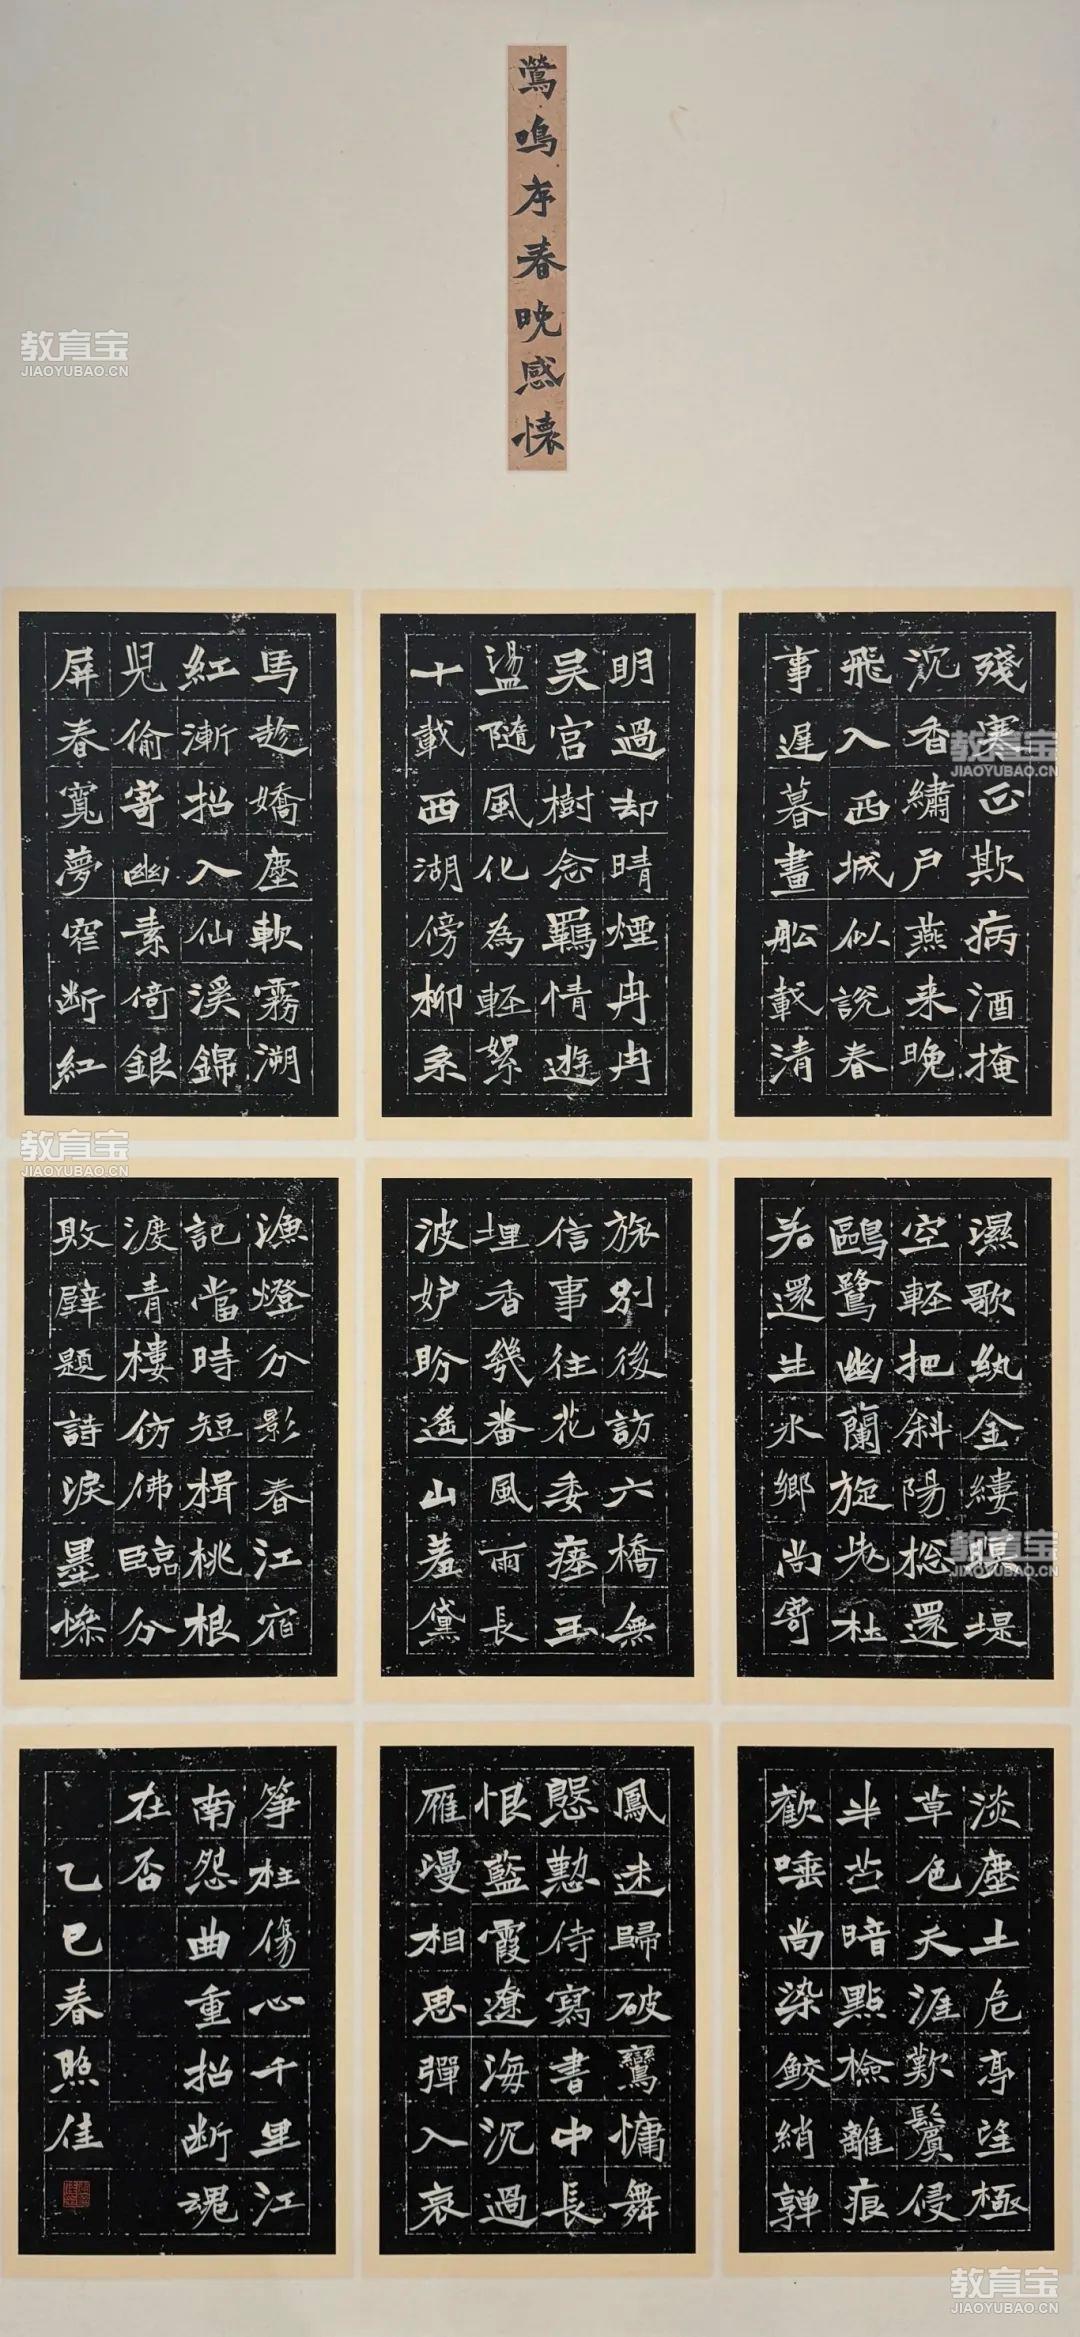 鶯鳴序春晚感懷
殘寒正欺病酒掩
沉香繡戶燕来晚
飛入西城似說春
事遲暮畫舩載清
明過却晴煙冉冉
吴宮樹念羈情遊
盪隨風化為輕絮
十載西湖傍柳系
馬趁嬌塵軟霧溯
紅漸招入仙溪錦
児偷寄幽素倚銀
屏春寬夢窄断紅
濕歌紈金縷暝堤
空輕把斜陽揔還
鷗鷺幽蘭旋老杜
若還生水鄉尚寄
旅别後訪六橋無
信事往花委瘞玉
埋香幾番風雨長
波妒盼遙山羞黛
漁燈分影春江宿
記當時短楫桃根
渡青樓仿佛臨分
敗壁題詩淚墨慘
淡塵土危亭望極
草色天涯歎鬢侵
半苎暗點檢離痕
歡唾尚染鲛綃亸
鳳迷歸破鸞慵舞
慇懃待寫書中長
恨藍霞遼海沉過
雁墁相思彈入哀
筝柱傷心千里江
南怨曲重招断魂
在否
乙巳春照佳
教育宝
JIAOYUBAO.CN
教育宝
JIAOYUBAO.CN
教育宝
JIAOYUBAO.CN
教育宝
JIAOYUBAO.CN
教育宝
JIAOYUBAO.CN